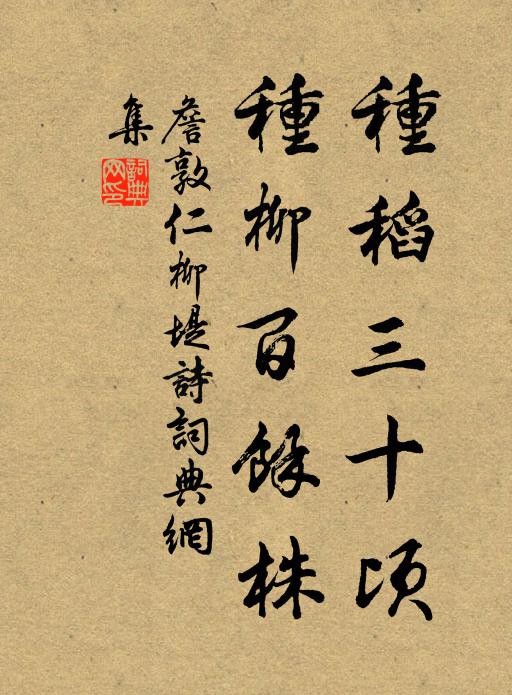 種稻三十頃
種柳百餘株
詹敦仁柳堤詩詞典網
集
詞典
网印